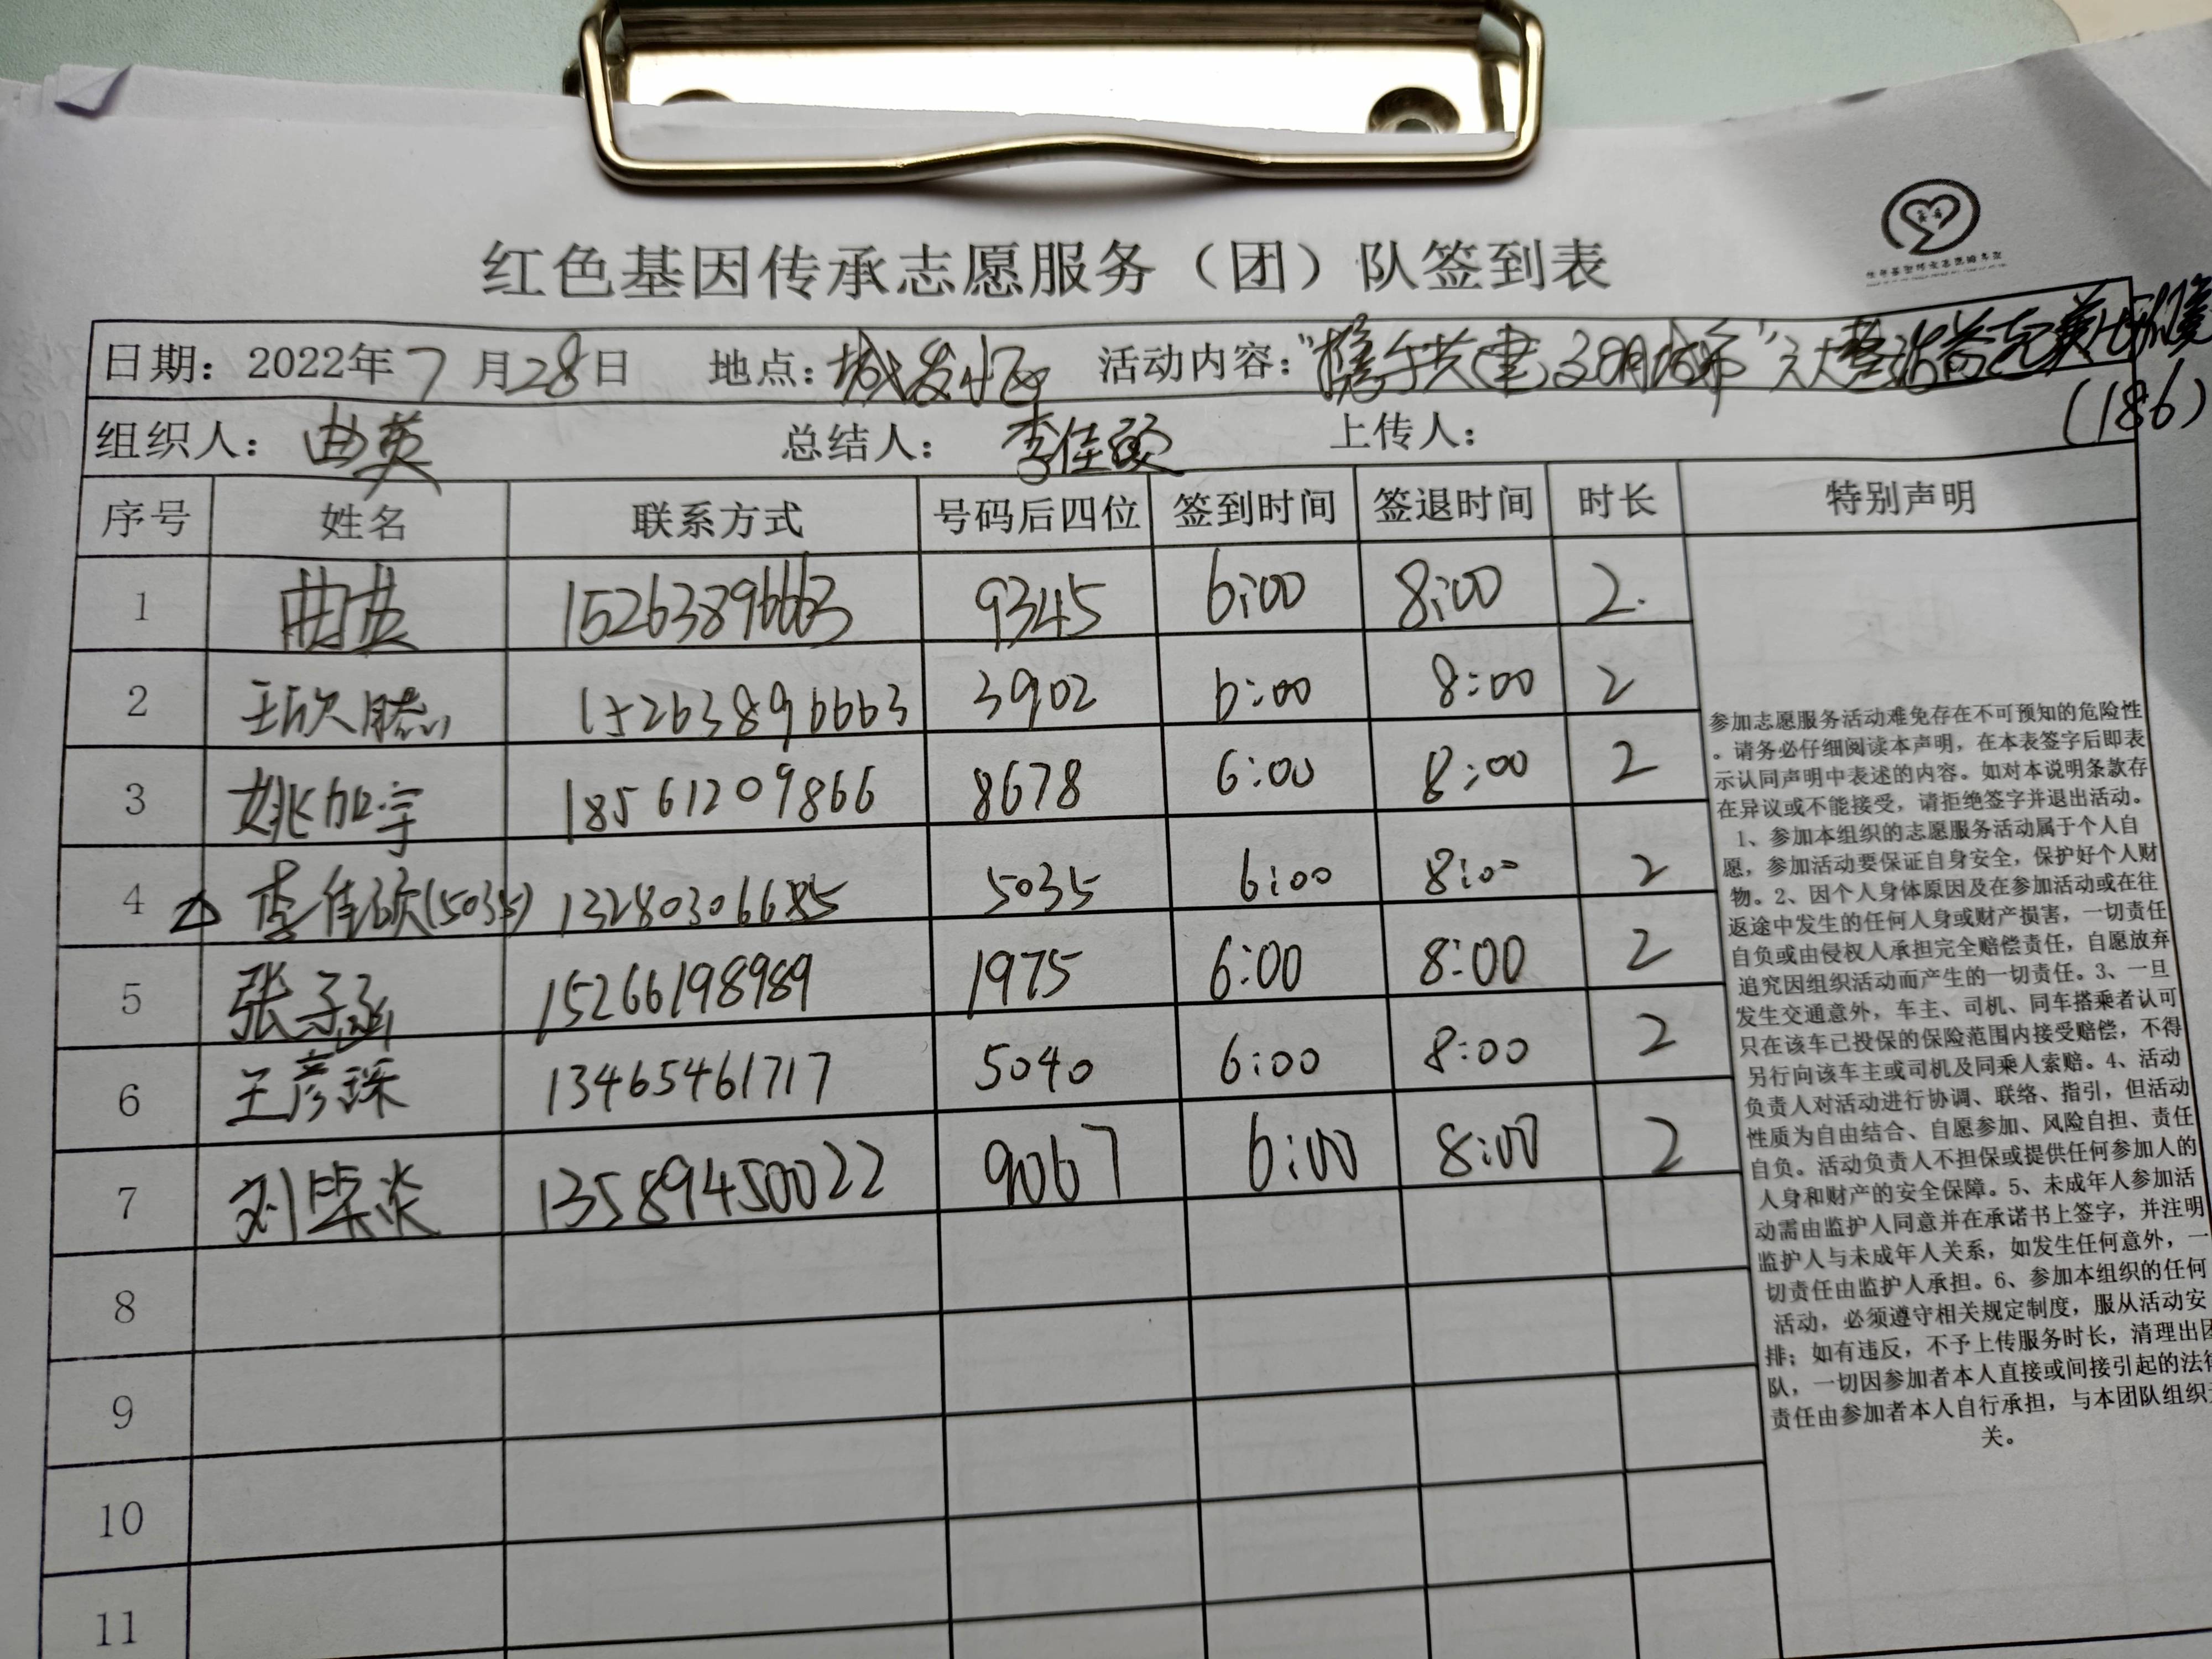 红色基因传承志愿服务（团）队签到表
日期：2022年7月28日 地点：城发小区 活动内容：“携手共建文明城市”
(186)
组织人：曲英 总结人：李佳 上传人：
序号 姓名 联系方式 号码后四位 签到时间 签退时间 时长 特别声明
1 曲英 15263896663 9345 6:00 8:00 2.
2 王欣 15263896663 3902 6:00 8:00 2
3 姚加宇 18561209866 8678 6:00 8:00 2
4 李佳(5035) 13280306685 5035 6:00 8:00 2
5 张子涵 15266198989 1975 6:00 8:00 2
6 王彦琛 13465461717 5040 6:00 8:00 2
7 刘 13589450022 9067 6:00 8:00 2
8
9
10
11
参加志愿服务活动难免存在不可预知的危险性
。请务必仔细阅读本声明，在本表签字后即表
示认同声明中表述的内容。如对本说明条款存
在异议或不能接受，请拒绝签字并退出活动。
1、参加本组织的志愿服务活动属于个人自
愿，参加活动要保证自身安全，保护好个人财
物。2、因个人身体原因及在参加活动或在往
返途中发生的任何人身或财产损害，一切责任
自负或由侵权人承担完全赔偿责任，自愿放弃
追究因组织活动而产生的一切责任。3、一旦
发生交通意外，车主、司机、同车搭乘者认可
只在该车已投保的保险范围内接受赔偿，不得
另行向该车主或司机及同乘人索赔。4、活动
负责人对活动进行协调、联络、指引，但活动
性质为自由结合、自愿参加、风险自担、责任
自负。活动负责人不担保或提供任何参加人的
人身和财产的安全保障。5、未成年人参加活
动需由监护人同意并在承诺书上签字，并注明
监护人与未成年人关系，如发生任何意外，一
切责任由监护人承担。6、参加本组织的任何
活动，必须遵守相关规定制度，服从活动安
排；如有违反，不予上传服务时长，清理出团
队，一切因参加者本人直接或间接引起的法律
责任由参加者本人自行承担，与本团队组织无
关。